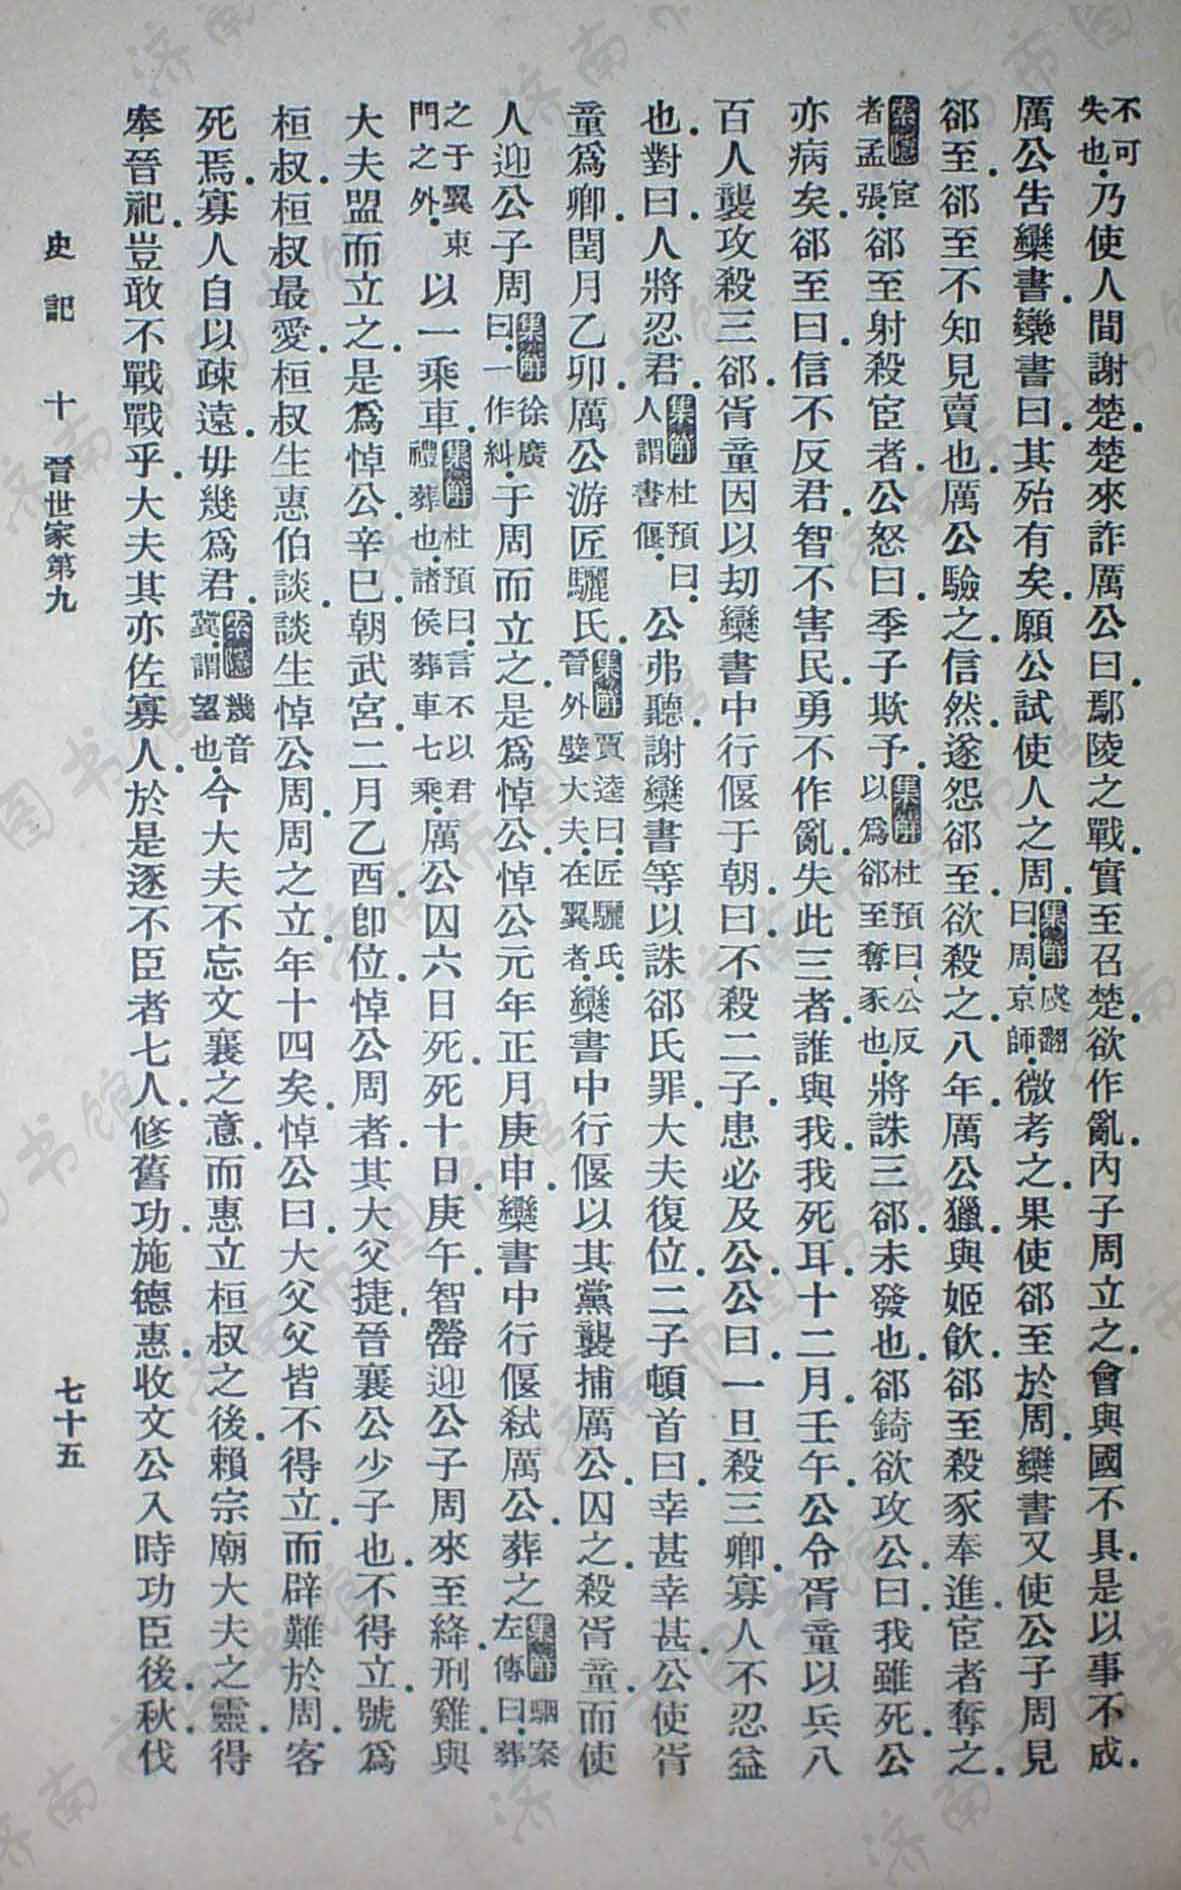 不可失也．乃使人間謝楚．楚來詐厲公曰．鄢陵之戰．實至召楚．欲作亂．內子周立之．會與國不具．是以事不成．
厲公告欒書．欒書曰．其殆有矣．願公試使人之周．集解虞翻曰．周．京師．微考之．果使郤至於周．欒書又使公子周見
郤至．郤至不知見賣也．厲公驗之．信然．遂怨郤至．欲殺之．八年．厲公獵．與姬飲．郤至殺豕奉進．宦者奪之．
索隱宦者孟張．郤至射殺宦者．公怒曰．季子欺予．集解杜預曰．公反以爲郤至奪豕也．將誅三郤．未發也．郤錡欲攻公．曰．我雖死．公
亦病矣．郤至曰．信不反君．智不害民．勇不作亂．失此三者．誰與我．我死耳．十二月．壬午．公令胥童以兵八
百人襲攻殺三郤．胥童因以劫欒書中行偃于朝．曰．不殺二子．患必及公．公曰．一旦殺三卿．寡人不忍益
也．對曰．人將忍君．集解杜預曰．人謂書偃．公弗聽．謝欒書等以誅郤氏罪．大夫復位．二子頓首曰．幸甚幸甚．公使胥
童爲卿．閏月乙卯．厲公游匠驪氏．集解賈逵曰．匠驪氏．晉外嬖大夫．在翼者．欒書中行偃以其黨襲捕厲公．囚之．殺胥童．而使
人迎公子周集解徐廣曰．一作糾．于周而立之．是爲悼公．悼公元年正月庚申．欒書中行偃弒厲公．葬之集解駰案左傳曰．葬
之于翼東門之外．以一乘車．集解杜預曰．言不以君禮葬也．諸侯葬車七乘．厲公囚六日死．死十日．庚午．智罃迎公子周來．至絳．刑雞．與
大夫盟而立之．是爲悼公．辛巳．朝武宮．二月乙酉．卽位．悼公周者．其大父捷．晉襄公少子也．不得立．號爲
桓叔．桓叔最愛．桓叔生惠伯談．談生悼公周．周之立．年十四矣．悼公曰．大父父皆不得立．而辟難於周．客
死焉．寡人自以疎遠．毋幾爲君．索隱幾音冀．謂望也．今大夫不忘文襄之意．而惠立桓叔之後．賴宗廟大夫之靈．得
奉晉祀．豈敢不戰戰乎．大夫其亦佐寡人．於是逐不臣者七人．修舊功．施德惠．收文公入時功臣後．秋．伐
史記 十 晉世家第九 七十五